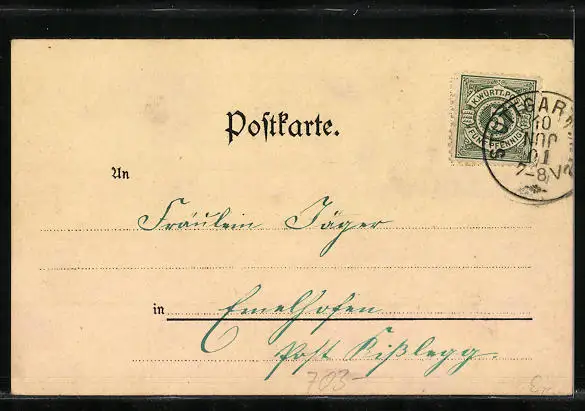 K. WÜRTT. POST
FÜNF PFENNIG
5
STUTTGART
10
JUN
01
7-8 V
Postkarte.
An
Fräulein Jäger
in Emelhofen
Post Kißlegg.
703-